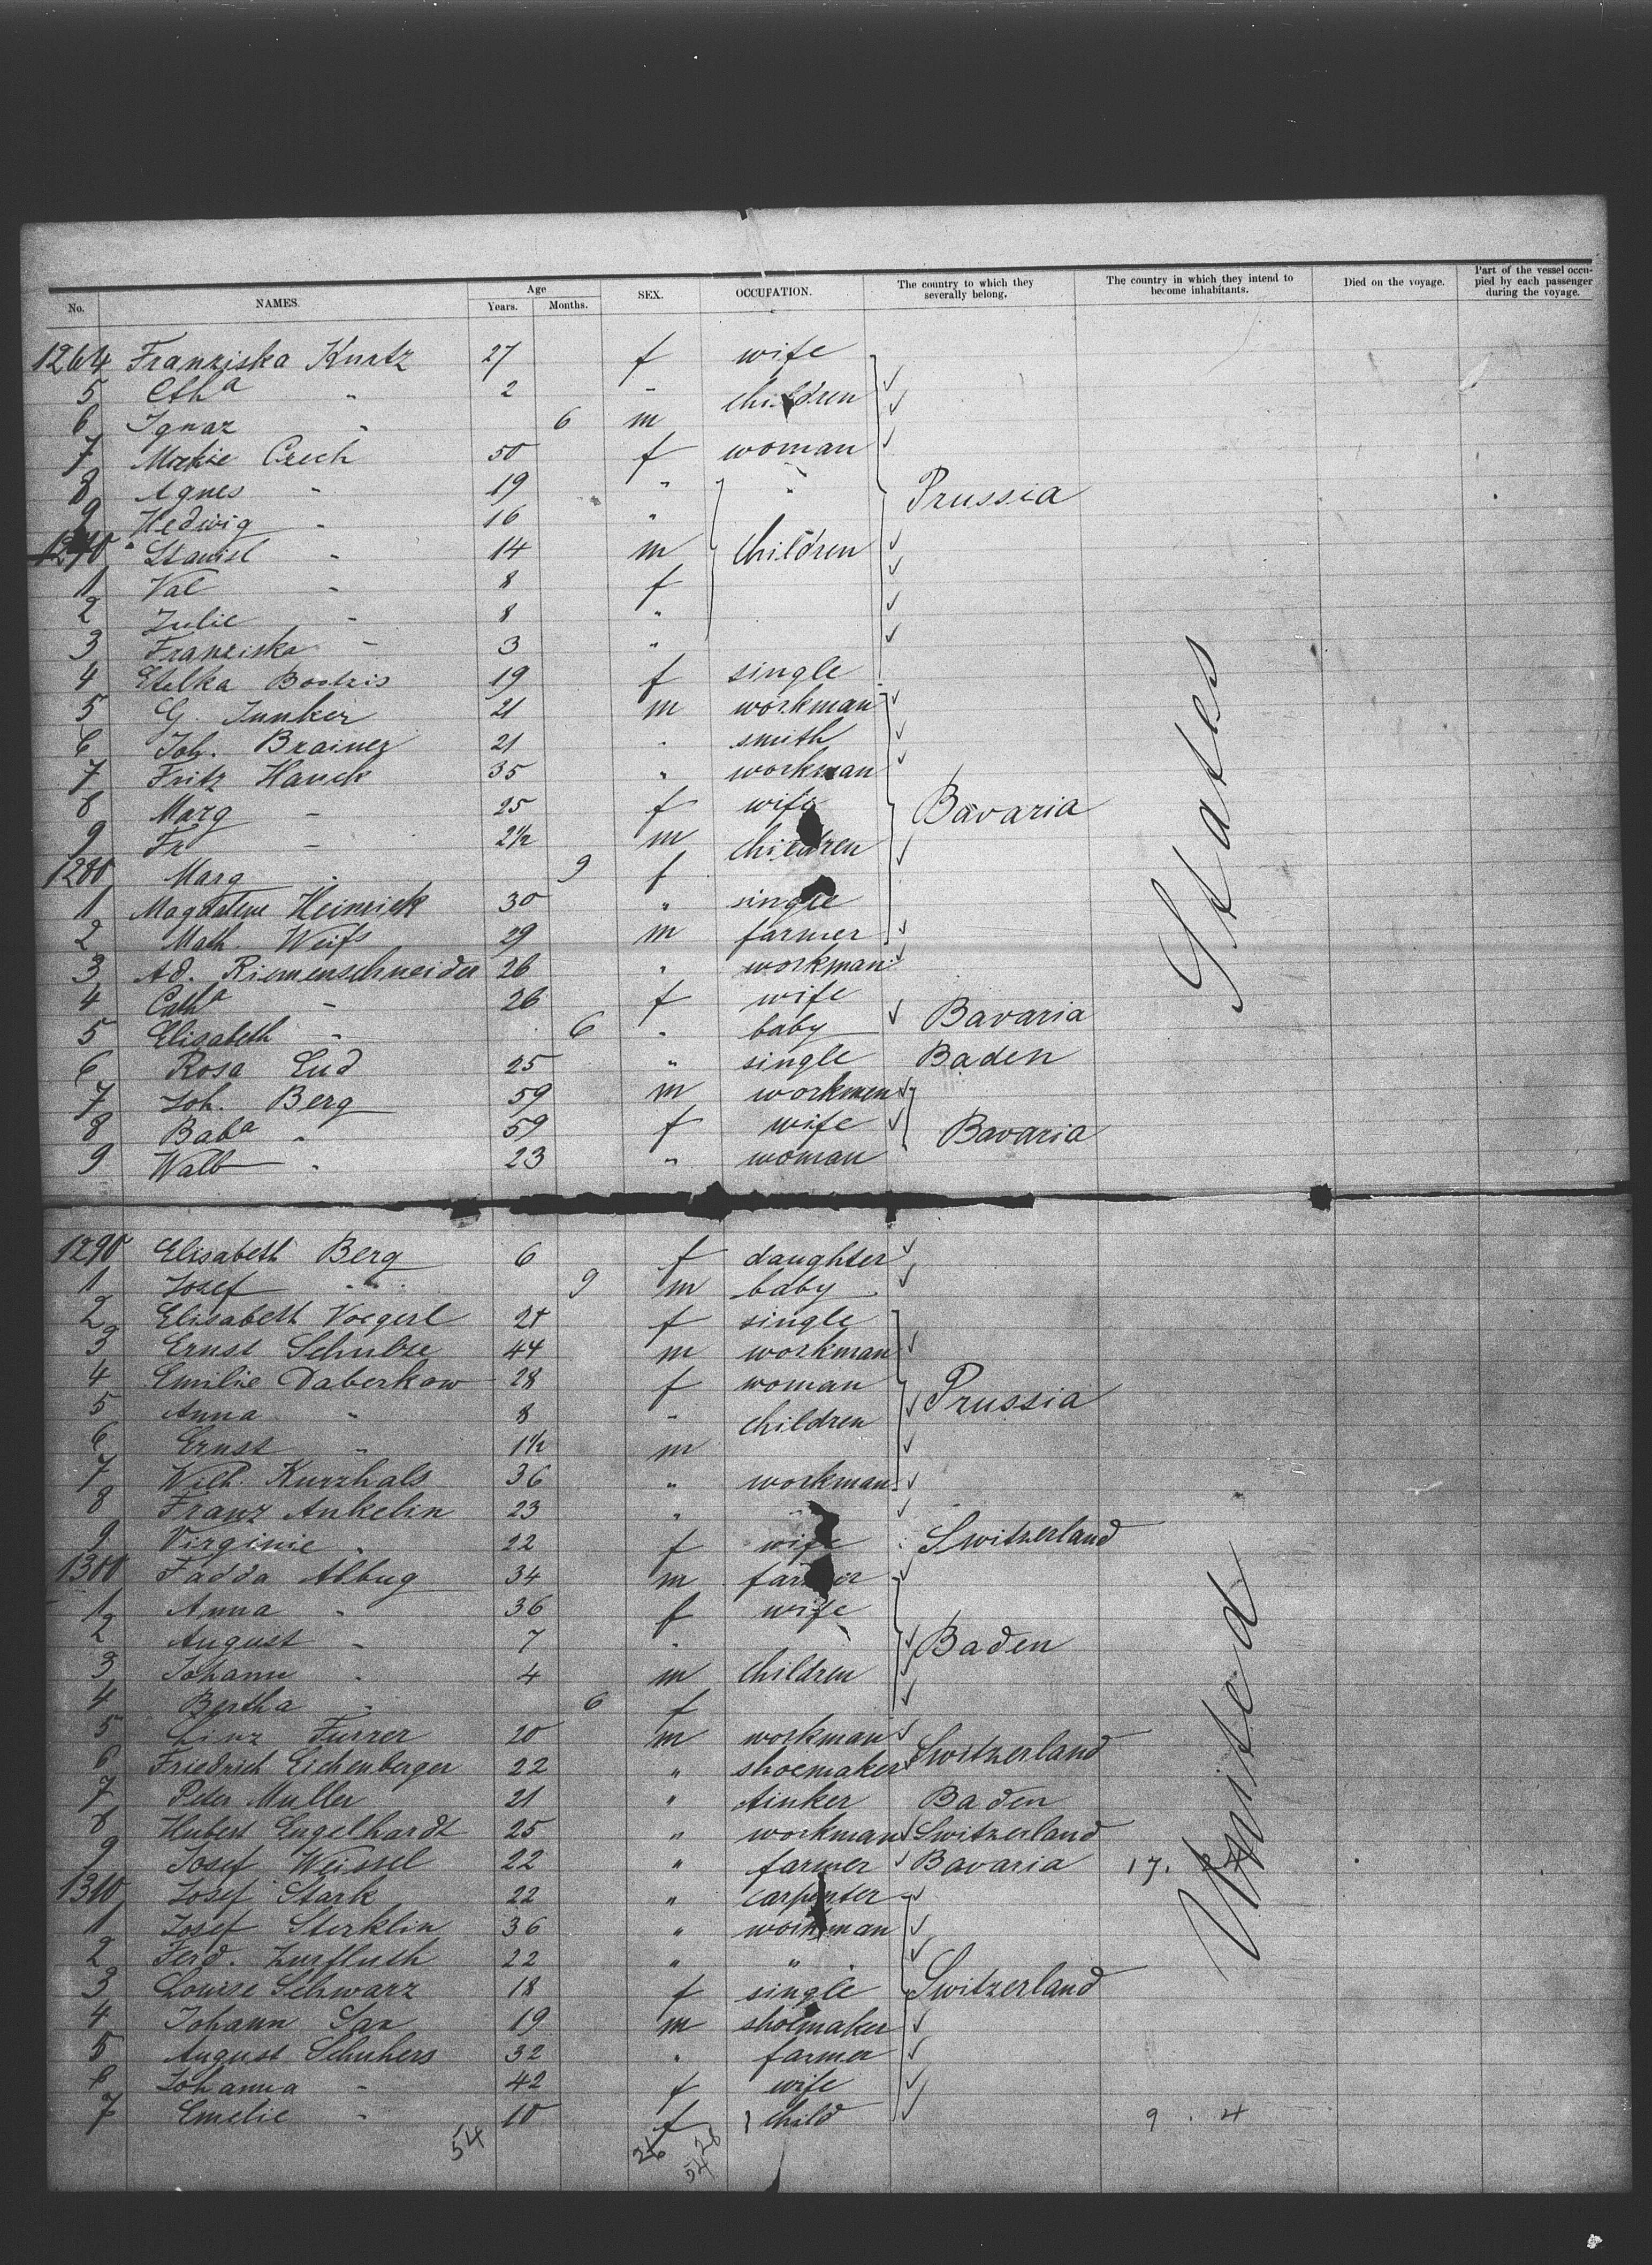 No. NAMES. Age Years. Months. SEX. OCCUPATION. The country to which they severally belong. The country in which they intend to become inhabitants. Died on the voyage. Part of the vessel occupied by each passenger during the voyage.
1264 Franziska Kurtz 27 f wife
5 Cth a " 2 " children
6 Ignaz " 6 m
7 Czech 50 f woman
8 Agnes " 19 " " Prussia
9 Hedwig " 16 "
1270 Stanisl " 14 m children
1 Val " 8 f
2 Julie " 8 "
3 Franziska " 3 "
4 Etelka 19 f single
5 G. Junker 21 m workman
6 Joh. Brainer 21 " smith
7 Fritz Hauck 35 " workman
8 Marg " 25 f wife Bavaria
9 Fr " 2½ m children
1280 Marg " 9 f
1 Magdalene Heinrich 30 " single
2 Math. Weifs 29 m farmer
3 Ad. Riemenschneider 26 " workman
4 Cath a " 26 f wife Bavaria
5 Elisabeth " 6 " baby
6 Rosa Eud 25 " single Baden
7 Joh. Berg 59 m workmen
8 Bab a " 59 f wife Bavaria
9 Walb " 23 " woman
1290 Elisabeth Berg 6 f daughter
1 Josef " 9 m baby
2 Elisabeth Voegerl 21 f single
3 Ernst Schulze 44 m workman
4 Emilie Daberkow 28 f woman Prussia
5 Anna " 8 " children
6 Ernst " 1½ m
7 Wilh. Kurzhals 36 " workman
8 Franz Ankelin 23 " "
9 Virginie " 22 f wife Switzerland
1300 Fadda Albug 34 m farmer
1 Anna " 36 f wife
2 August " 7 " Baden
3 Johann " 4 m children
4 Bertha " 6 f
5 Linz Furrer 20 m workman Switzerland
6 Friedrich Eichenberger 22 " shoemaker
7 Peter Muller 21 " tinker Baden
8 Hubert Engelhardt 25 " workman Switzerland
9 Josef Weissel 22 " farmer Bavaria 17.
1310 Josef Stark 22 " carpenter
1 Josef Sterklin 36 " workman
2 Ferd. Zurfluth 22 " "
3 Louise Schwarz 18 f single Switzerland
4 Johann Sax 19 m shoemaker
5 August Schuhers 32 " farmer
6 Johanna " 42 f wife
7 Emelie " 10 f child 9 . 4
54 26 28
54
United States